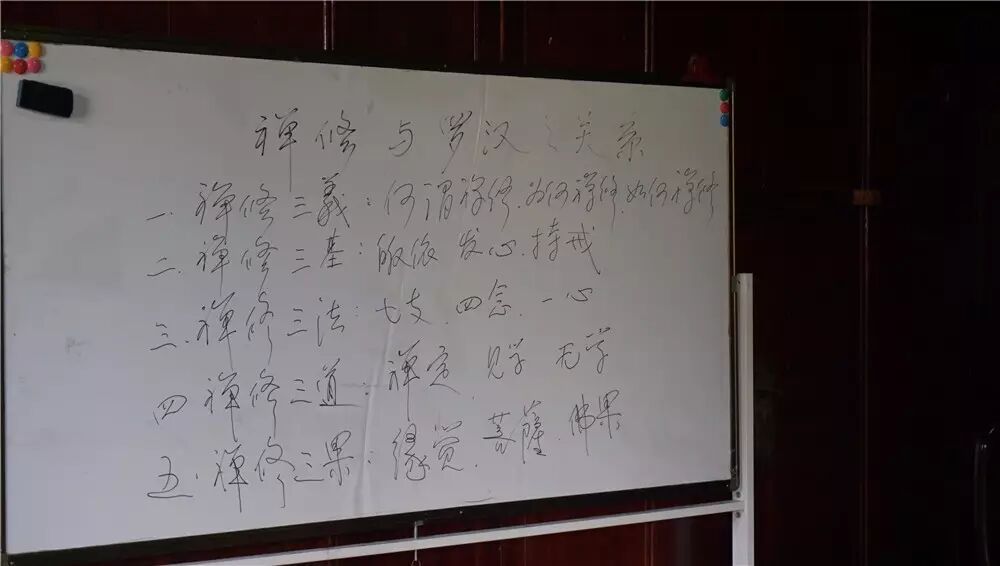 禅修与罗汉之关系
一.禅修三義：何謂禅修.为何禅修.如何禅修
二.禅修三基：皈依 发心.持戒
三.禅修三法：七支.四念.一心
四 禅修三道：禅定.见学 无学
五.禅修三果：缘觉.菩薩.佛果